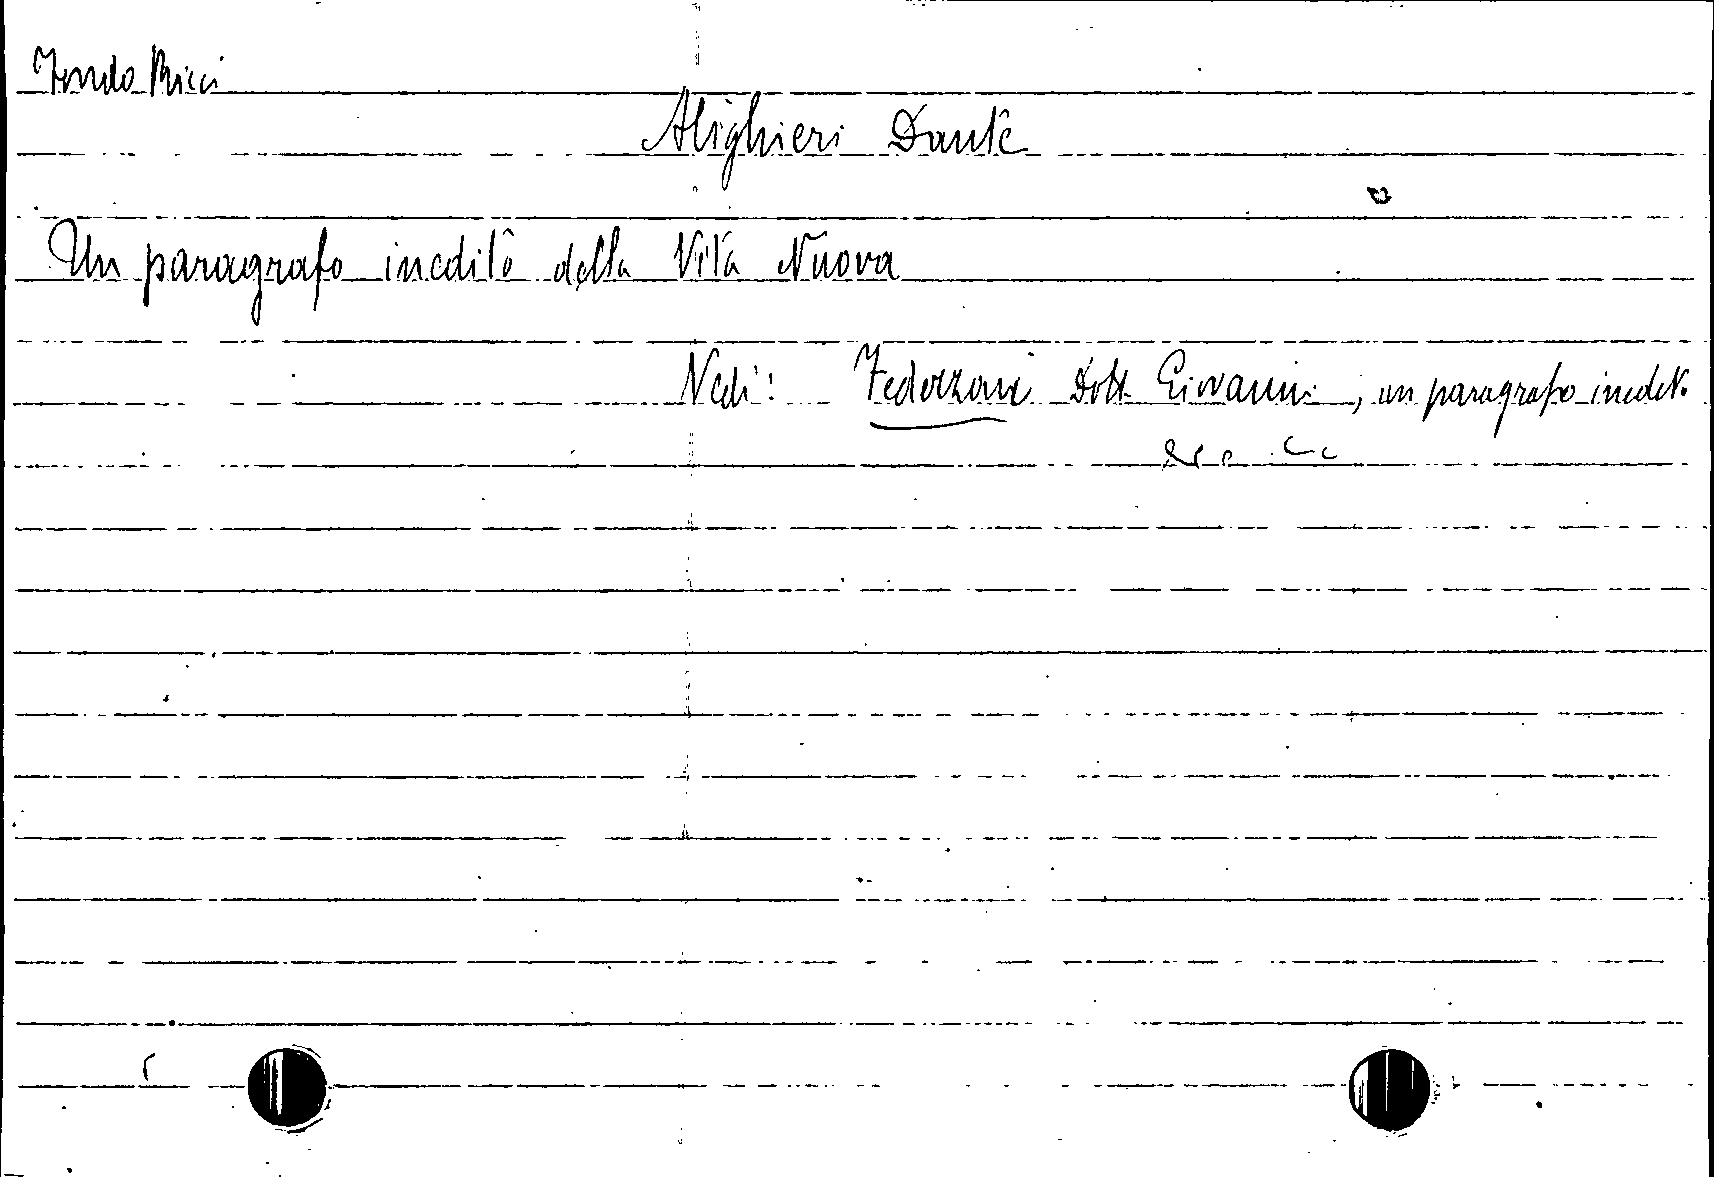 Fondo Ricci
Alighieri Dante
Un paragrafo inedito della Vita Nuova
Vedi: Federzoni Dott. Giovanni, un paragrafo inedito